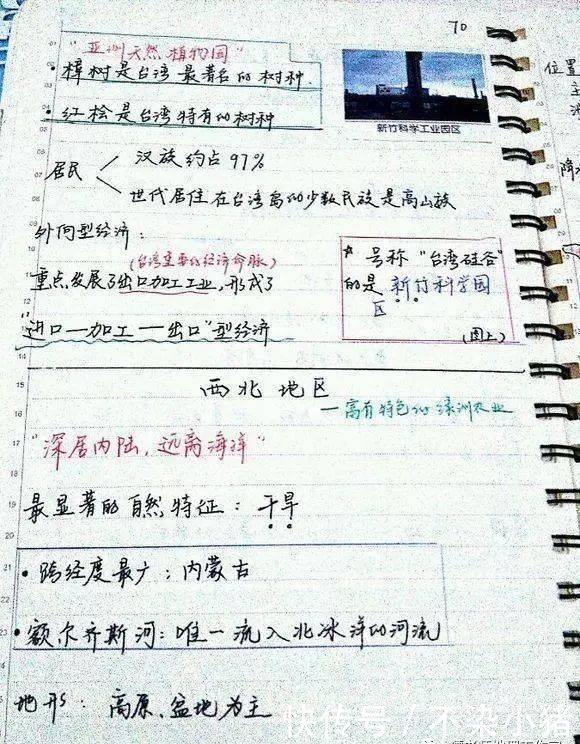 70
"亚洲天然植物园"
• 樟树是台湾最著名的树种.
• 红桧是台湾特有的树种
新竹科学工业园区
居民
汉族约占97%
世代居住在台湾岛的少数民族是高山族
外向型经济:
(台湾重要的经济命脉)
重点发展了出口加工工业,形成了
"进口—加工—出口"型经济
* 号称"台湾硅谷"
的是新竹科学园
区
(图上)
西北地区
—富有特色的绿洲农业
"深居内陆,远离海洋"
最显著的自然特征:干旱
• 跨经度最广:内蒙古
• 额尔齐斯河:唯一流入北冰洋的河流
地形:高原、盆地为主
位置
降水
快传号 / 不染小猪